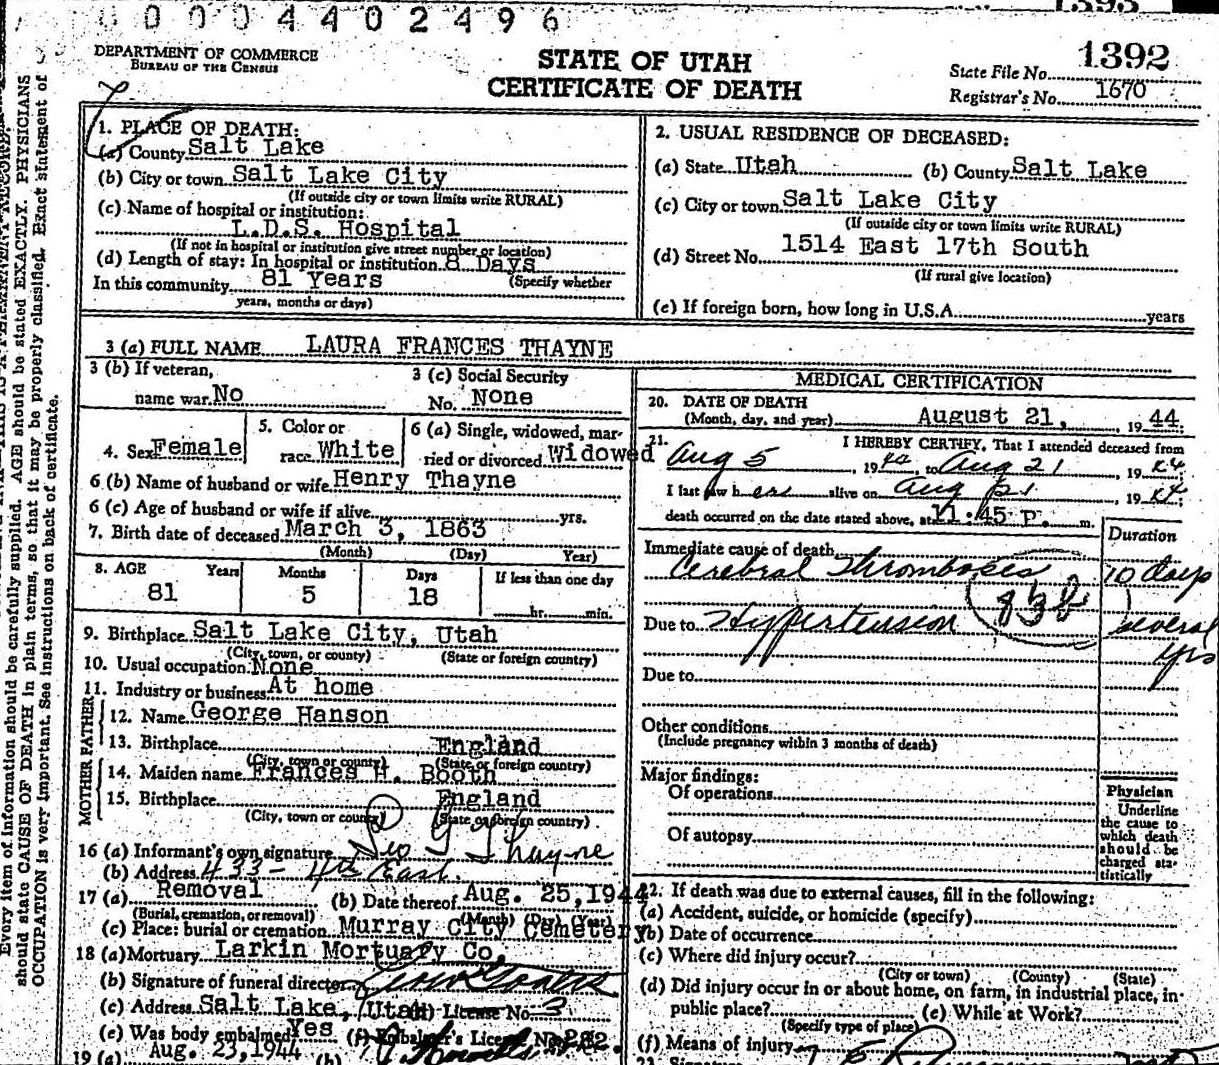 00004402496
1393
DEPARTMENT OF COMMERCE
BUREAU OF THE CENSUS
STATE OF UTAH
CERTIFICATE OF DEATH
State File No. 1392
Registrar's No. 1670
Every item of information should be carefully supplied. AGE should be stated EXACTLY. PHYSICIANS
should state CAUSE OF DEATH in plain terms, so that it may be properly classified. Exact statement of
OCCUPATION is very important. See instructions on back of certificate.
1. PLACE OF DEATH:
(a) County Salt Lake
(b) City or town Salt Lake City
(If outside city or town limits write RURAL)
(c) Name of hospital or institution:
L.D.S. Hospital
(If not in hospital or institution give street number or location)
(d) Length of stay: In hospital or institution 8 Days
In this community 81 Years (Specify whether
years, months or days)
2. USUAL RESIDENCE OF DECEASED:
(a) State Utah (b) County Salt Lake
(c) City or town Salt Lake City
(If outside city or town limits write RURAL)
(d) Street No. 1514 East 17th South
(If rural give location)
(e) If foreign born, how long in U.S.A. years
3 (a) FULL NAME LAURA FRANCES THAYNE
3 (b) If veteran,
name war No
3 (c) Social Security
No. None
4. Sex Female
5. Color or
race White
6 (a) Single, widowed, mar-
ried or divorced Widowed
6 (b) Name of husband or wife Henry Thayne
6 (c) Age of husband or wife if alive yrs.
7. Birth date of deceased March 3, 1863
(Month) (Day) Year)
8. AGE Years Months Days If less than one day
81 5 18 hr. min.
9. Birthplace Salt Lake City, Utah
(City, town, or county) (State or foreign country)
10. Usual occupation None
11. Industry or business At home
FATHER
12. Name George Hanson
13. Birthplace England
(City, town or county) (State or foreign country)
MOTHER
14. Maiden name Frances H. Booth
15. Birthplace England
(City, town or county) (State or foreign country)
16 (a) Informant's own signature Geo G Thayne
(b) Address 433 - 4th East
17 (a) Removal (b) Date thereof Aug. 25, 1944
(Burial, cremation, or removal) (Month) (Day) (Year)
(c) Place: burial or cremation Murray City Cemetery
18 (a) Mortuary Larkin Mortuary Co.
(b) Signature of funeral director
(c) Address Salt Lake, Utah (d) License No. 3
(e) Was body embalmed Yes (f) Embalmer's License No. 282.
19 (a) Aug. 23, 1944 (b)
MEDICAL CERTIFICATION
20. DATE OF DEATH
(Month, day, and year) August 21, 19 44
21. I HEREBY CERTIFY, That I attended deceased from
Aug 5, 19 44, to Aug 21 19 44
I last saw her alive on Aug 21, 19 44
death occurred on the date stated above, at 11:45 P. m.
Duration
Immediate cause of death
Cerebral Thromboses 10 days
83b
Due to Hypertension several
yrs
Due to
Other conditions
(Include pregnancy within 3 months of death)
Major findings:
Of operations
Of autopsy
Physician
Underline
the cause to
which death
should be
charged sta-
tistically
22. If death was due to external causes, fill in the following:
(a) Accident, suicide, or homicide (specify)
(b) Date of occurrence
(c) Where did injury occur?
(City or town) (County) (State)
(d) Did injury occur in or about home, on farm, in industrial place, in
public place? (e) While at Work?
(Specify type of place)
(f) Means of injury